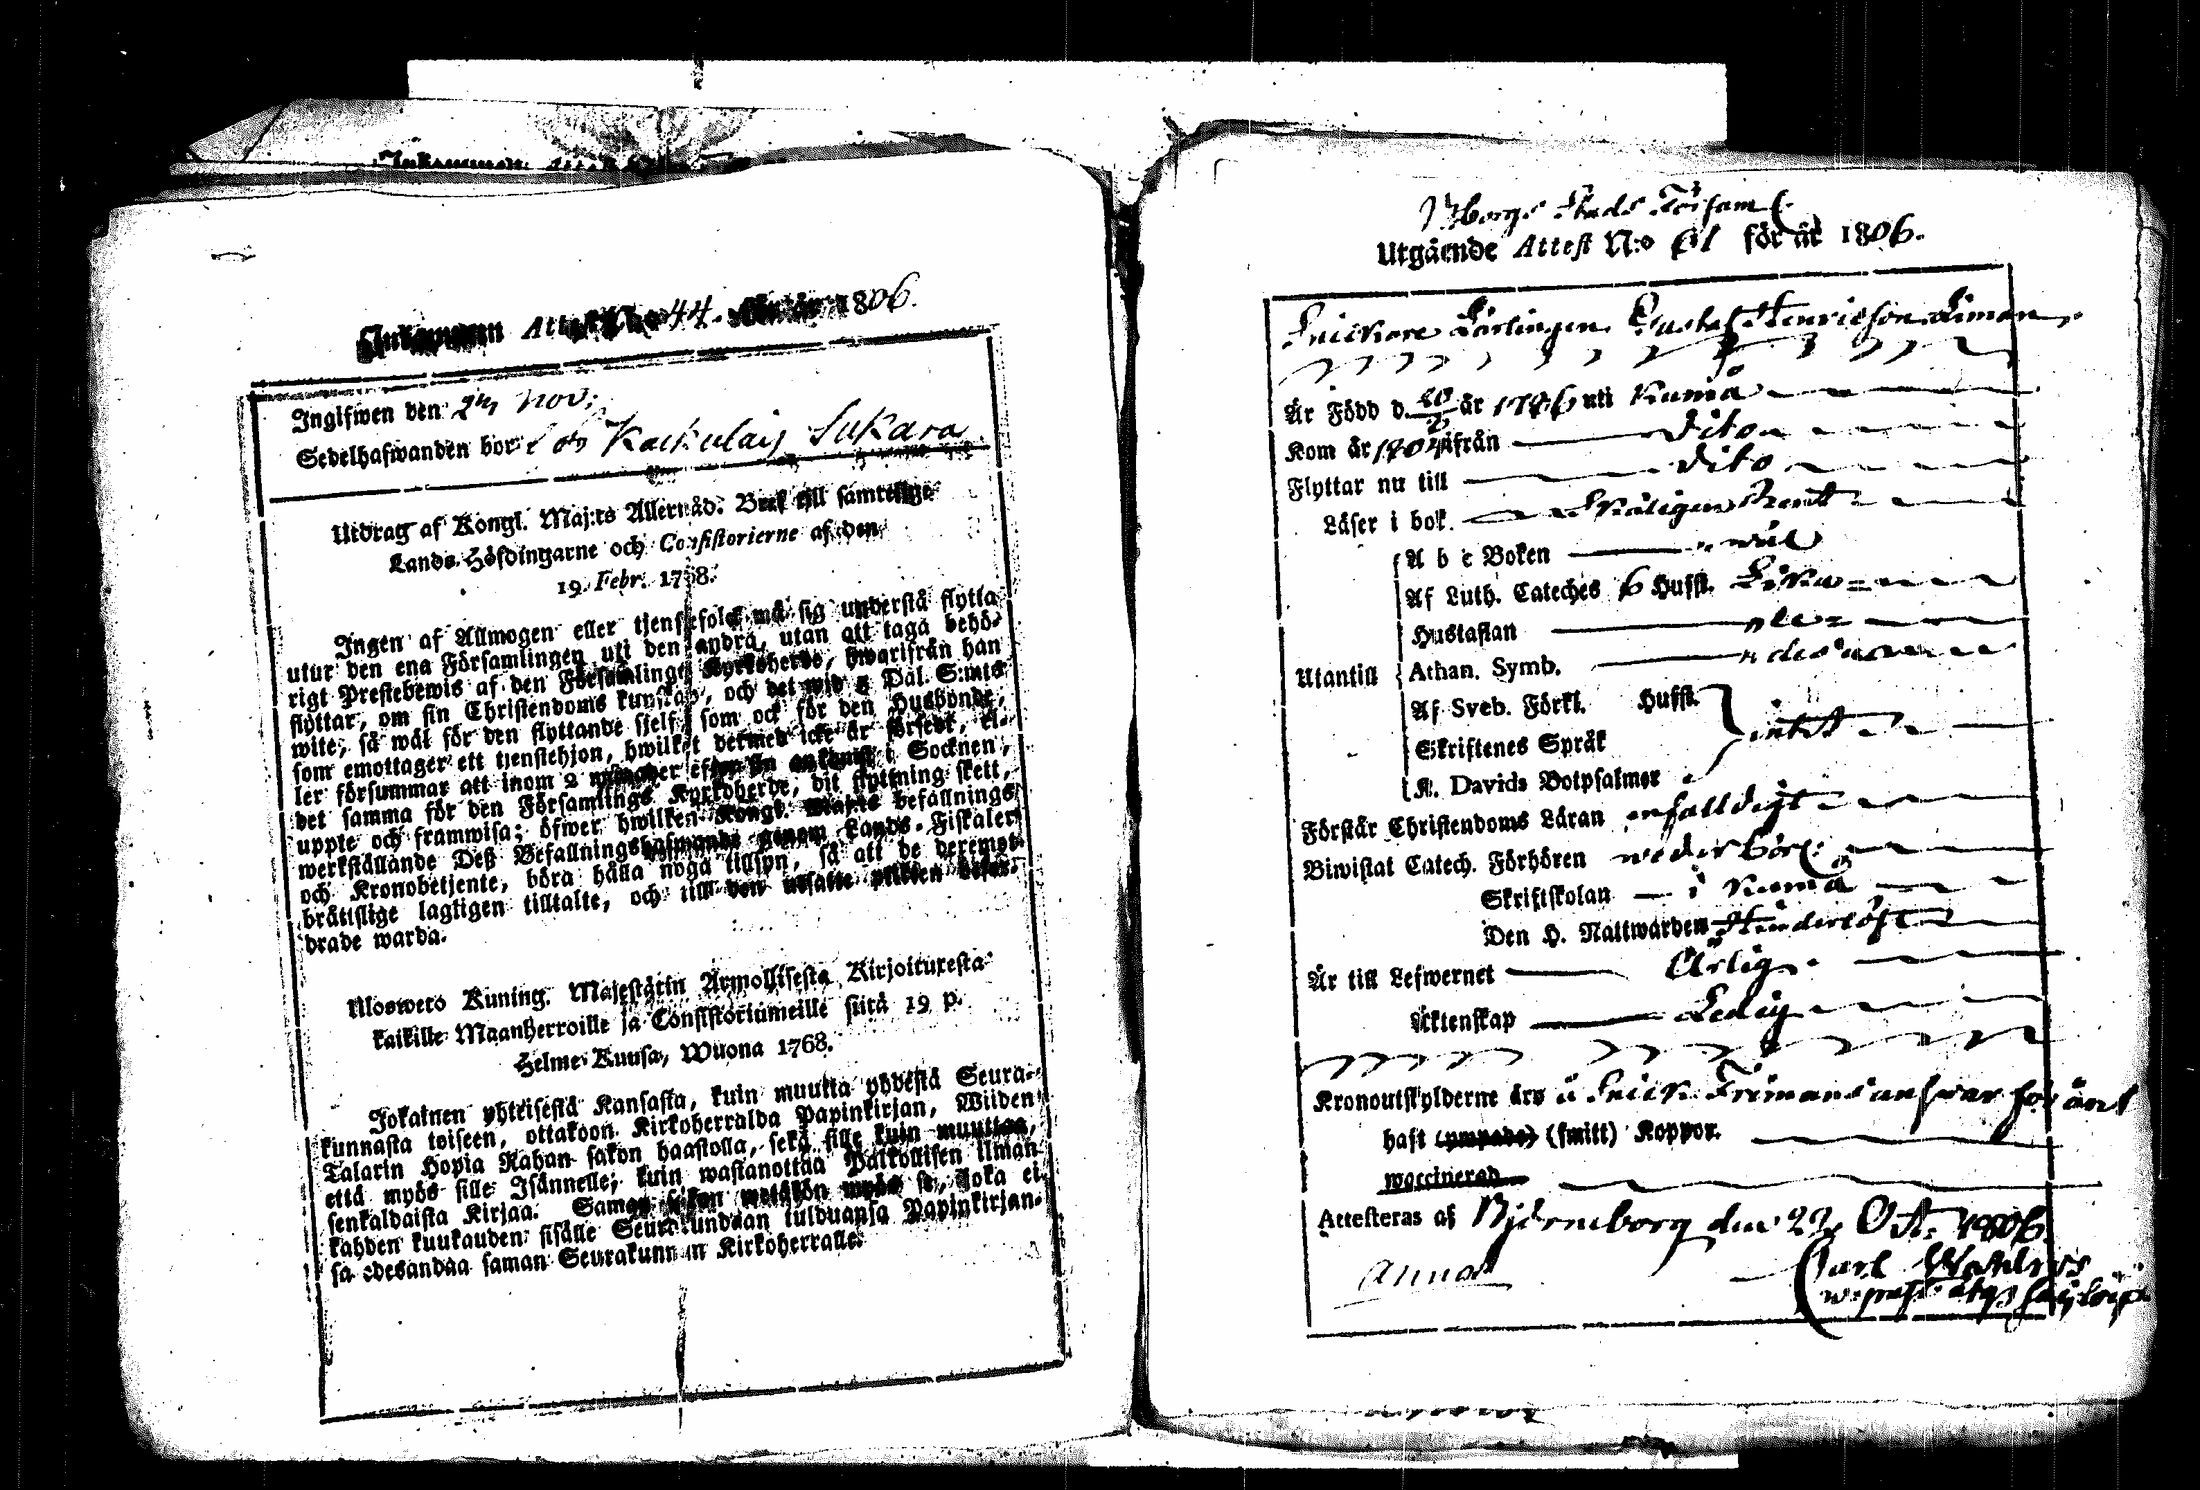 Inkommen Attest N:o 44. för år 1806.
Ingifwen den 2 Nov:
Sedelhafwanden bor hos Kackulais Sukara
Utdrag af Kongl. Maj:ts Allernåd. Bref till samtelige
Lands-Höfdingarne och Consistorierne af den
19. Febr. 1768.
Ingen af Allmogen eller tjenstefolck må sig understå flytta
utur den ena Församlingen uti den andra, utan att taga behö-
rigt Prestebewis af den Församlings Kyrkoherde, hwarifrån han
flyttar, om sin Christendoms kunskap, och det wid 5 Dal. S:mts
wite, så wäl för den flyttande sjelf, som ock för den Husbonde,
som emottager ett tjenstehjon, hwilket dermed icke är försedt, el-
ler försummar att inom 2 månader efter sin ankomst i Socknen,
det samma för den Församlings Kyrkoherde, dit flyttning skett,
uppte och framwisa; öfwer hwilken Kongl. Maj:ts befallnings
werkställande Deß Befallningshafwande genom Lands-Fiskaler
och Kronobetjente, böra hålla noga tillsyn, så att de deremot
bråttslige lagligen tilltalte, och till den utsatte plikten befor-
drade warda.
Uloswето Kuning. Majestätin Armollisesta Kirjoituxesta
kaikille Maanherroille ja Consistoriumeille siitä 19 p.
Helme-Kuusa, Wuona 1768.
Jokainen yhteisestä Kansasta, kuin muutta yhdestä Seura-
kunnasta toiseen, ottakoon Kirkoherralda Papinkirjan, Wiiden
Talarin Hopia Rahan sakon haastolla, sekä sille kuin muuttaa,
että myös sille Isännelle, kuin wastanottaa Palkollisen ilman
senkaldaista Kirjaa. Saman sakon wetäkön myös se, joka ei
kahden kuukauden sisälle Seurakundaan tulduansa Papinkirjan-
sa edesandaa saman Seurakunnan Kirkoherralle.
Bborgs Stads Församl:
Utgående Attest N:o 61 för år 1806.
Snickare Lärlingen Gustaf Henricson Liman
Är Född d. 20 år 1786 uti Kumå
Kom år 1804 ifrån dito
Flyttar nu till dito
Läser i bok. Skäligen Rent
A b c Boken wäl
Af Luth. Cateches 6 Hufst. Lika
Hustaflan
Utantill Athan. Symb.
Af Sveb. Förkl. Hufst.
Skriftenes Språk intet
K. Davids Botpsalmer
Förstår Christendoms Läran enfalldigt
Biwistat Catech. Förhören wederbörl:
Skriftskolan i Kumå
Den H. Nattwarden Hinderlöst
Är till Lefwernet Ärlig
Äktenskap Ledig
Kronoutskylderne äro å Snick. Frimans answar för året
haft (ympade) (smitt) Koppor.
waccinerad
Attesteras af Björneborg den 22 Oct. 1806.
Anna
Carl Wahlros